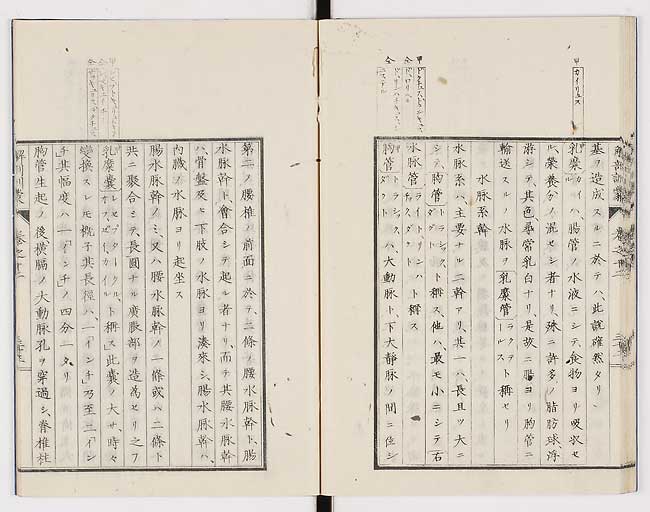 基ヲ造成スルニ於テハ、此説確然タリ、
乳糜カイルハ、腸管ノ水液ニシテ、食物ヨリ吸收セ
ル、榮養分ノ混セシ者ナリ、殊ニ許多ノ脂肪球浮
游シテ、其色尋常乳白ナリ、是故ニ腸ヨリ胸管ニ
輸送スルノ水脉ヲ乳糜管ラクテトールスト稱セリ
水脉系幹
水脉系ハ、主要ナル二幹アリ、其一ハ長且ツ大ニ
シテ、胸管トラシスクダクトト稱ス、他ハ、最モ小ニシテ右
水脉管ト稱ス
胸管トラシスクダクトハ、大動脉ト、下大静脉ノ間ニ位シ
第二ノ腰椎ノ前面ニ於テ、二條ノ腰水脉幹ト、腸
水脉幹ト、會合シテ起ル者ナリ、而テ其腰水脉幹
ハ、骨盤及ヒ下肢ノ水脉ヨリ湊來シ、腸水脉幹ハ、
内臓ノ水脉ヨリ起坐ス
腸水脉幹ノミ、又ハ腰水脉幹ノ一條或ハ二條ト
共ニ聚合シテ、長圓ナル廣脈部ヲ造為セリ之ヲ
乳糜嚢レセプタークル、オフ、ゼ、カイルト稱ス此嚢ノ大サ、時々
變換スレモ、概子其長徑ハ、一「インチ」乃至二「イン
チ」其幅度ハ一「インチ」ノ四分一タリ
胸管生起ノ後横膈ノ大動脉孔ヲ穿過シ、脊椎柱